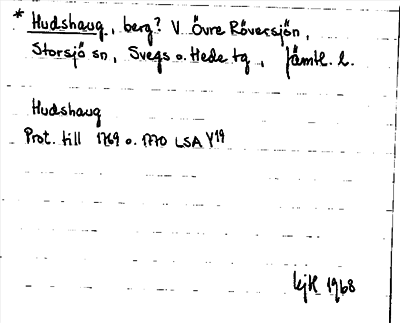 * Hudshaug, berg? V. Övre Röversjön,
Storsjö sn, Svegs o. Hede tg, Jämtl. l.
Hudshaug
Prot. till 1769 o. 1770 LSA Y19
kjk 1968